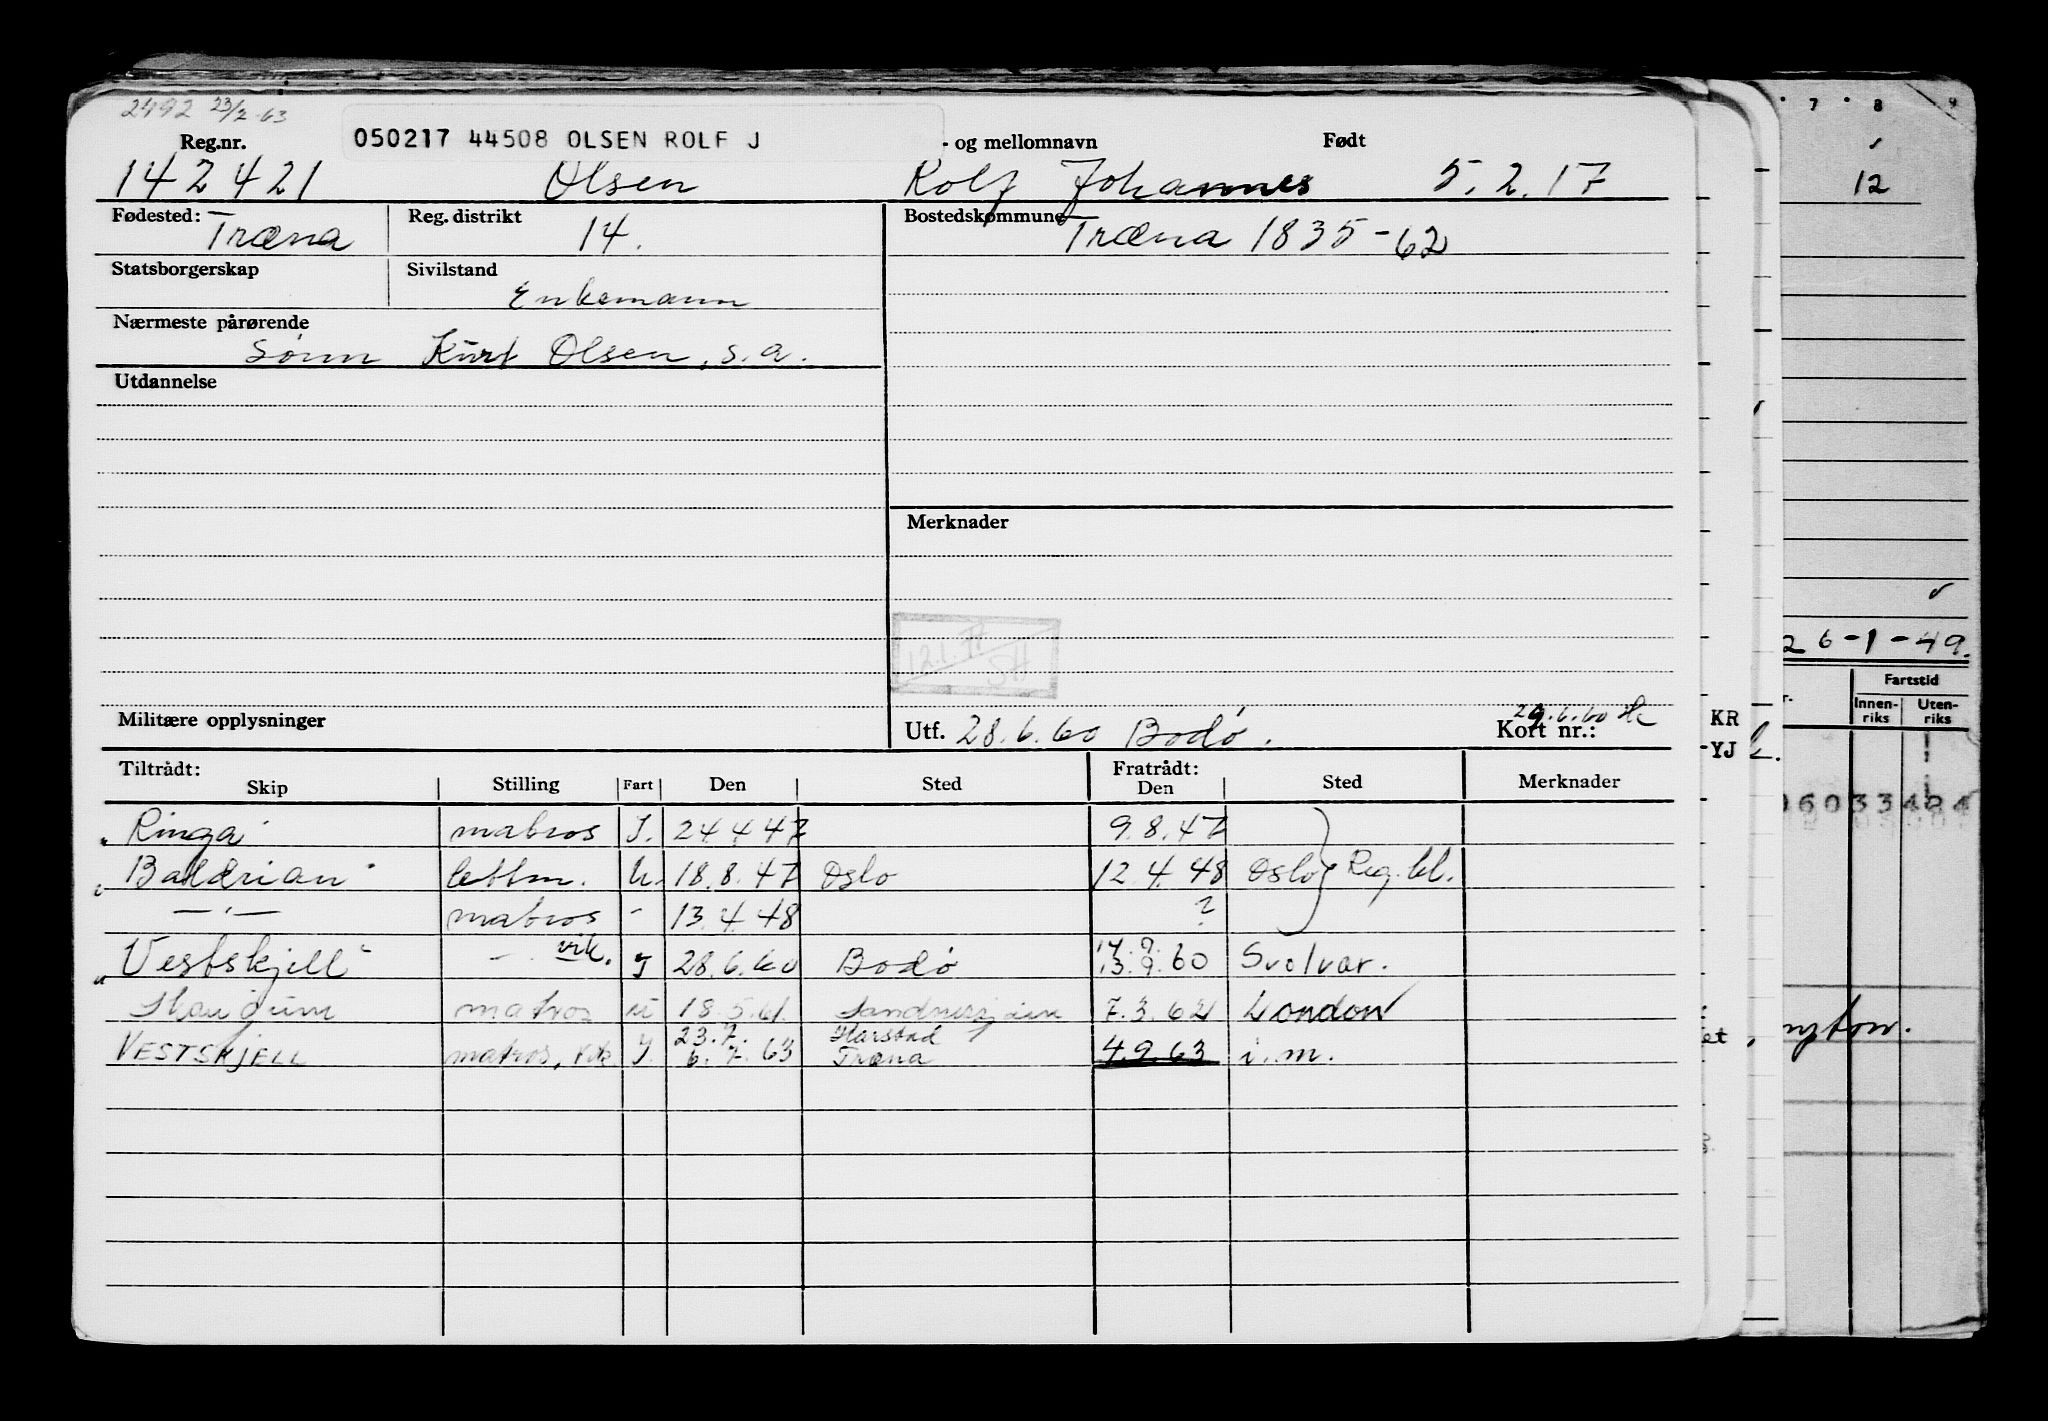 2492 23/2-63
Reg.nr. 050217 44508 OLSEN ROLF J - og mellomnavn Født
142421 Olsen Rolf Johannes 5.2.17
Fødested: Træna Reg. distrikt 14. Bostedskommune Træna 1835-62
Statsborgerskap Sivilstand Enkemann
Nærmeste pårørende
Sønn Kurt Olsen, s.a.
Utdannelse
Merknader
12.1.77
SH
Militære opplysninger Utf. 28.6.60 Bodø. Kort nr.: 29.6.60
Tiltrådt: Fratrådt:
Skip Stilling Fart Den Sted Den Sted Merknader
Ringa matros I. 24.4.47 9.8.47
Baldrian lettm. U. 18.8.47 Oslo 12.4.48 Oslo Reg. bl.
— " — matros - 13.4.48 ?
Vestskjell - " - vik. I 28.6.60 Bodø 14.9. 13.9.60 Svolvær.
matros U 18.5.61. Sandnessjøen 7.3.62 London
23.7. Harstad
VESTSKJELL matros, vik. I. 6.7.63 Træna 4.9.63 i.m.
7 8 9
12
26-1-49.
Fartstid
Innen-riks Uten-riks
KR
-YJ